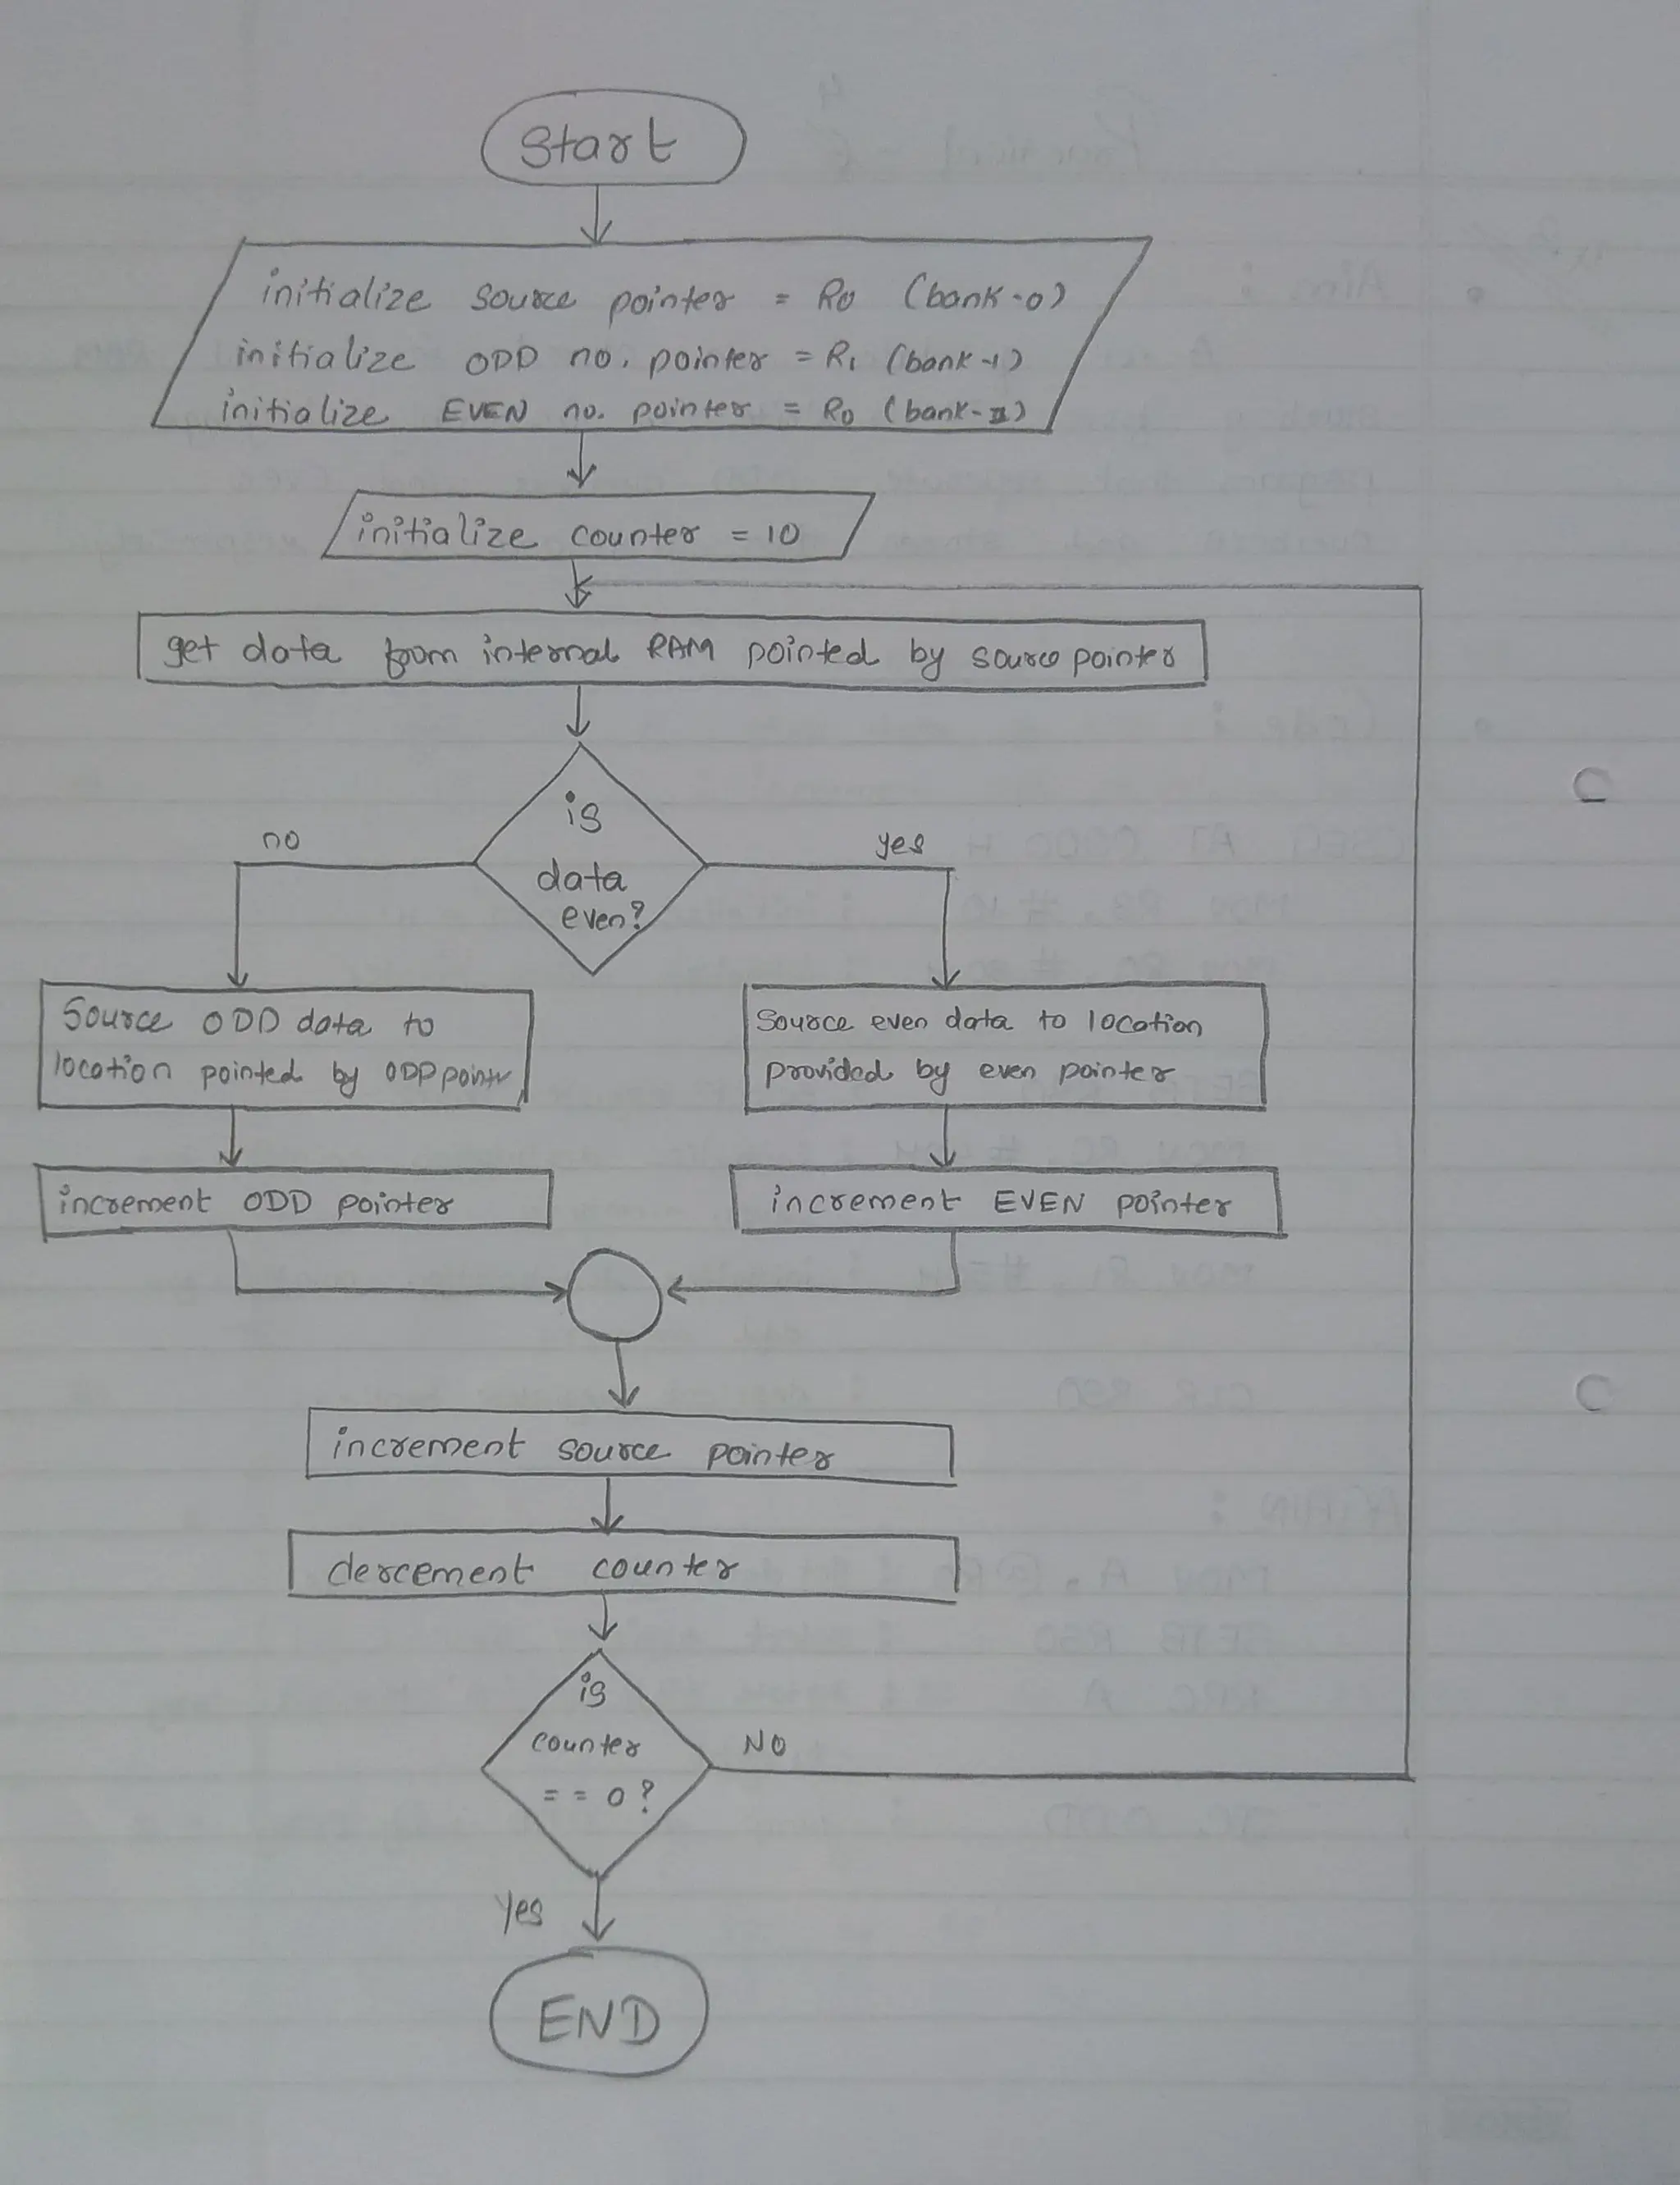 Start
initialize source pointer = R0 (bank-0)
initialize ODD no. pointer = R1 (bank-1)
initialize EVEN no. pointer = R0 (bank-1)
initialize counter = 10
get data from internal RAM pointed by source pointer
is
data
even?
no
yes
Source ODD data to
location pointed by ODD pointr
Source even data to location
provided by even pointer
increment ODD pointer
increment EVEN pointer
increment source pointer
dercement counter
is
counter
== 0?
NO
Yes
END